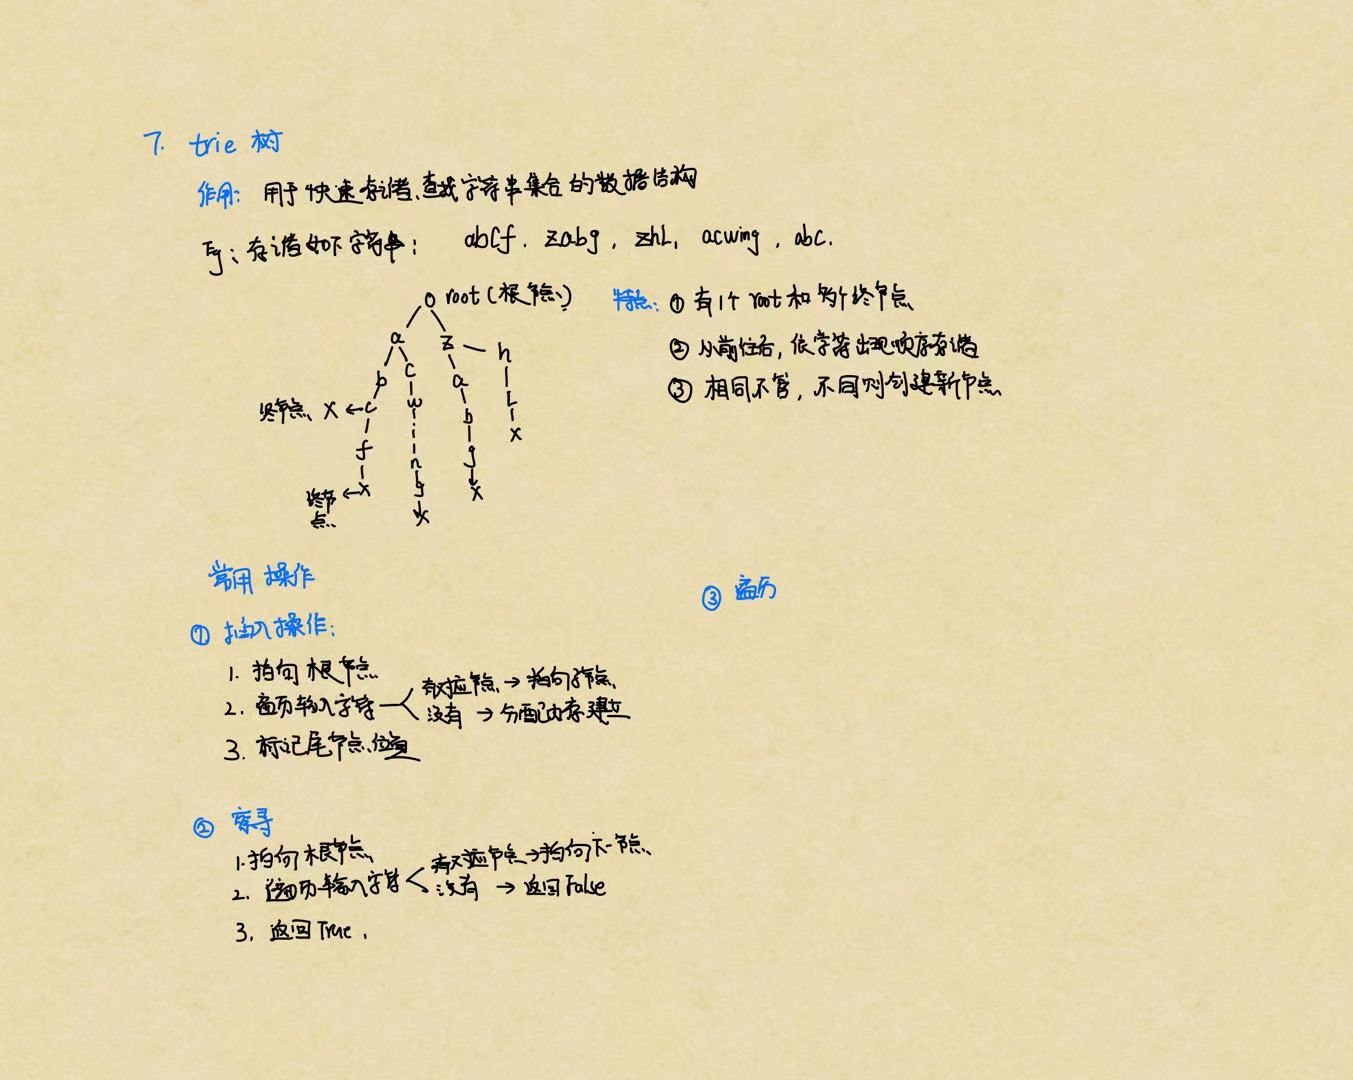 7. trie 树
作用: 用于快速存储、查找字符串集合的数据结构
Eg: 存储如下字符串: abcf. zabg, zhL, acwing, abc.
0 root (根节点)
a z h
b c a L
终节点 X ← c w b X
f i g
终节点 ← X n X
g
X
特点: ① 有1个 root 和 多个终节点
② 从前往后, 依字符出现顺序存储
③ 相同不管, 不同则创建新节点
常用操作
① 插入操作:
1. 指向根节点
2. 遍历输入字符 有对应节点 → 指向子节点
没有 → 分配内存建立
3. 标记尾节点位置
② 察寻
1. 指向根节点
2. 遍历输入字符 有对应节点 → 指向下一节点
没有 → 返回False
3. 返回True.
③ 遍历